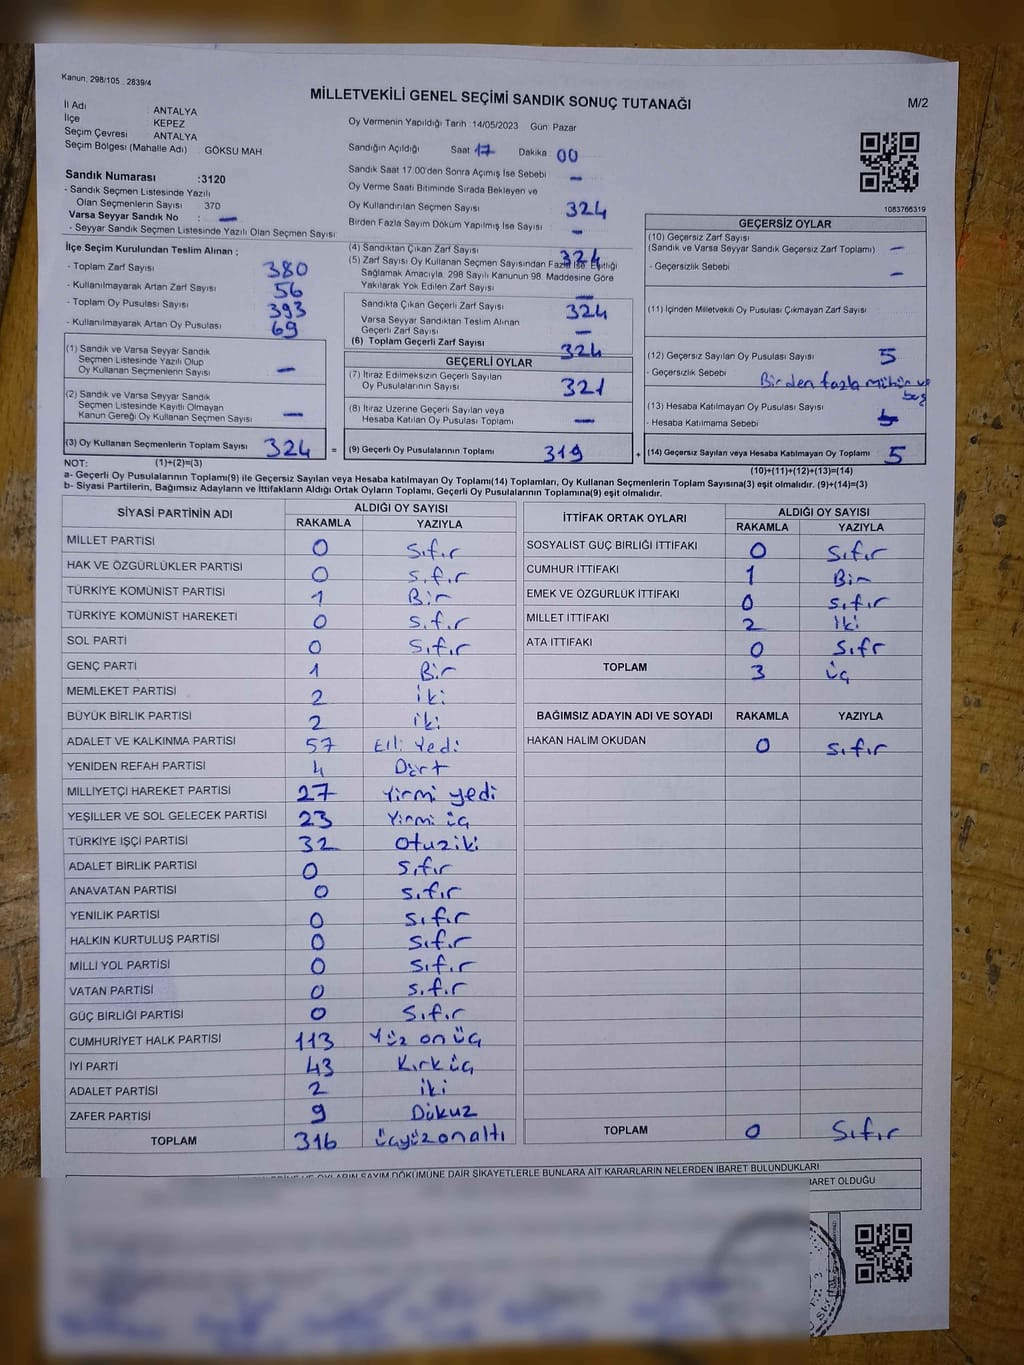 Kanun: 298/105 , 2839/4
MİLLETVEKİLİ GENEL SEÇİMİ SANDIK SONUÇ TUTANAĞI
M/2
İl Adı : ANTALYA
İlçe KEPEZ
Seçim Çevresi : ANTALYA
Seçim Bölgesi (Mahalle Adı) : GÖKSU MAH
Sandık Numarası :3120
- Sandık Seçmen Listesinde Yazılı
Olan Seçmenlerin Sayısı : 370
Varsa Seyyar Sandık No : -
- Seyyar Sandık Seçmen Listesinde Yazılı Olan Seçmen Sayısı:
Oy Vermenin Yapıldığı Tarih :14/05/2023 Gün: Pazar
Sandığın Açıldığı Saat : 17 Dakika : 00
Sandık Saat 17.00'den Sonra Açımış İse Sebebi : -
Oy Verme Saati Bitiminde Sırada Bekleyen ve
Oy Kullandırılan Seçmen Sayısı : 324
Birden Fazla Sayım Döküm Yapılmış İse Sayısı : -
1083766319
İlçe Seçim Kurulundan Teslim Alınan :
- Toplam Zarf Sayısı : 380
- Kullanılmayarak Artan Zarf Sayısı : 56
- Toplam Oy Pusulası Sayısı : 393
- Kullanılmayarak Artan Oy Pusulası : 69
(1) Sandık ve Varsa Seyyar Sandık
Seçmen Listesinde Yazılı Olup
Oy Kullanan Seçmenlerin Sayısı : -
(2) Sandık ve Varsa Seyyar Sandık
Seçmen Listesinde Kayıtlı Olmayan
Kanun Gereği Oy Kullanan Seçmen Sayısı : -
(3) Oy Kullanan Seçmenlerin Toplam Sayısı : 324 =
(4) Sandıktan Çıkan Zarf Sayısı : 324
(5) Zarf Sayısı Oy Kullanan Seçmen Sayısından Fazla İse, Eşitliği
Sağlamak Amacıyla, 298 Sayılı Kanunun 98. Maddesine Göre
Yakılarak Yok Edilen Zarf Sayısı : -
Sandıkta Çıkan Geçerli Zarf Sayısı : 324
Varsa Seyyar Sandıktan Teslim Alınan
Geçerli Zarf Sayısı : -
(6) Toplam Geçerli Zarf Sayısı : 324
GEÇERLİ OYLAR
(7) İtiraz Edilmeksizin Geçerli Sayılan
Oy Pusulalarının Sayısı : 321
(8) İtiraz Üzerine Geçerli Sayılan veya
Hesaba Katılan Oy Pusulası Toplamı : -
(9) Geçerli Oy Pusulalarının Toplamı : 319 +
GEÇERSİZ OYLAR
(10) Geçersiz Zarf Sayısı
(Sandık ve Varsa Seyyar Sandık Geçersiz Zarf Toplamı) : -
- Geçersizlik Sebebi : -
(11) İçinden Milletvekili Oy Pusulası Çıkmayan Zarf Sayısı :
(12) Geçersiz Sayılan Oy Pusulası Sayısı : 5
- Geçersizlik Sebebi : Birden fazla mühür ve
boş
(13) Hesaba Katılmayan Oy Pusulası Sayısı :
- Hesaba Katılmama Sebebi :
(14) Geçersiz Sayılan veya Hesaba Katılmayan Oy Toplamı : 5
NOT: (1)+(2)=(3)
(10)+(11)+(12)+(13)=(14)
a- Geçerli Oy Pusulalarının Toplamı(9) ile Geçersiz Sayılan veya Hesaba katılmayan Oy Toplamı(14) Toplamları, Oy Kullanan Seçmenlerin Toplam Sayısına(3) eşit olmalıdır. (9)+(14)=(3)
b- Siyasi Partilerin, Bağımsız Adayların ve İttifakların Aldığı Ortak Oyların Toplamı, Geçerli Oy Pusulalarının Toplamına(9) eşit olmalıdır.
SİYASİ PARTİNİN ADI ALDIĞI OY SAYISI
RAKAMLA YAZIYLA
MİLLET PARTİSİ 0 Sıfır
HAK VE ÖZGÜRLÜKLER PARTİSİ 0 Sıfır
TÜRKİYE KOMÜNİST PARTİSİ 1 Bir
TÜRKİYE KOMÜNİST HAREKETİ 0 Sıfır
SOL PARTİ 0 Sıfır
GENÇ PARTİ 1 Bir
MEMLEKET PARTİSİ 2 iki
BÜYÜK BİRLİK PARTİSİ 2 iki
ADALET VE KALKINMA PARTİSİ 57 Elli Yedi
YENİDEN REFAH PARTİSİ 4 Dört
MİLLİYETÇİ HAREKET PARTİSİ 27 Yirmi yedi
YEŞİLLER VE SOL GELECEK PARTİSİ 23 Yirmi üç
TÜRKİYE İŞÇİ PARTİSİ 32 Otuziki
ADALET BİRLİK PARTİSİ 0 Sıfır
ANAVATAN PARTİSİ 0 Sıfır
YENİLİK PARTİSİ 0 Sıfır
HALKIN KURTULUŞ PARTİSİ 0 Sıfır
MİLLİ YOL PARTİSİ 0 Sıfır
VATAN PARTİSİ 0 Sıfır
GÜÇ BİRLİĞİ PARTİSİ 0 Sıfır
CUMHURİYET HALK PARTİSİ 113 Yüz on üç
İYİ PARTİ 43 Kırk üç
ADALET PARTİSİ 2 iki
ZAFER PARTİSİ 9 Dokuz
TOPLAM 316 üçyüzonaltı
İTTİFAK ORTAK OYLARI ALDIĞI OY SAYISI
RAKAMLA YAZIYLA
SOSYALİST GÜÇ BİRLİĞİ İTTİFAKI 0 Sıfır
CUMHUR İTTİFAKI 1 Bir
EMEK VE ÖZGÜRLÜK İTTİFAKI 0 Sıfır
MİLLET İTTİFAKI 2 iki
ATA İTTİFAKI 0 Sıfr
TOPLAM 3 üç
BAĞIMSIZ ADAYIN ADI VE SOYADI RAKAMLA YAZIYLA
HAKAN HALİM OKUDAN 0 Sıfır
TOPLAM 0 Sıfır
OYLARIN SAYIM DÖKÜMÜNE DAİR ŞİKAYETLERLE BUNLARA AİT KARARLARIN NELERDEN İBARET BULUNDUKLARI
İBARET OLDUĞU